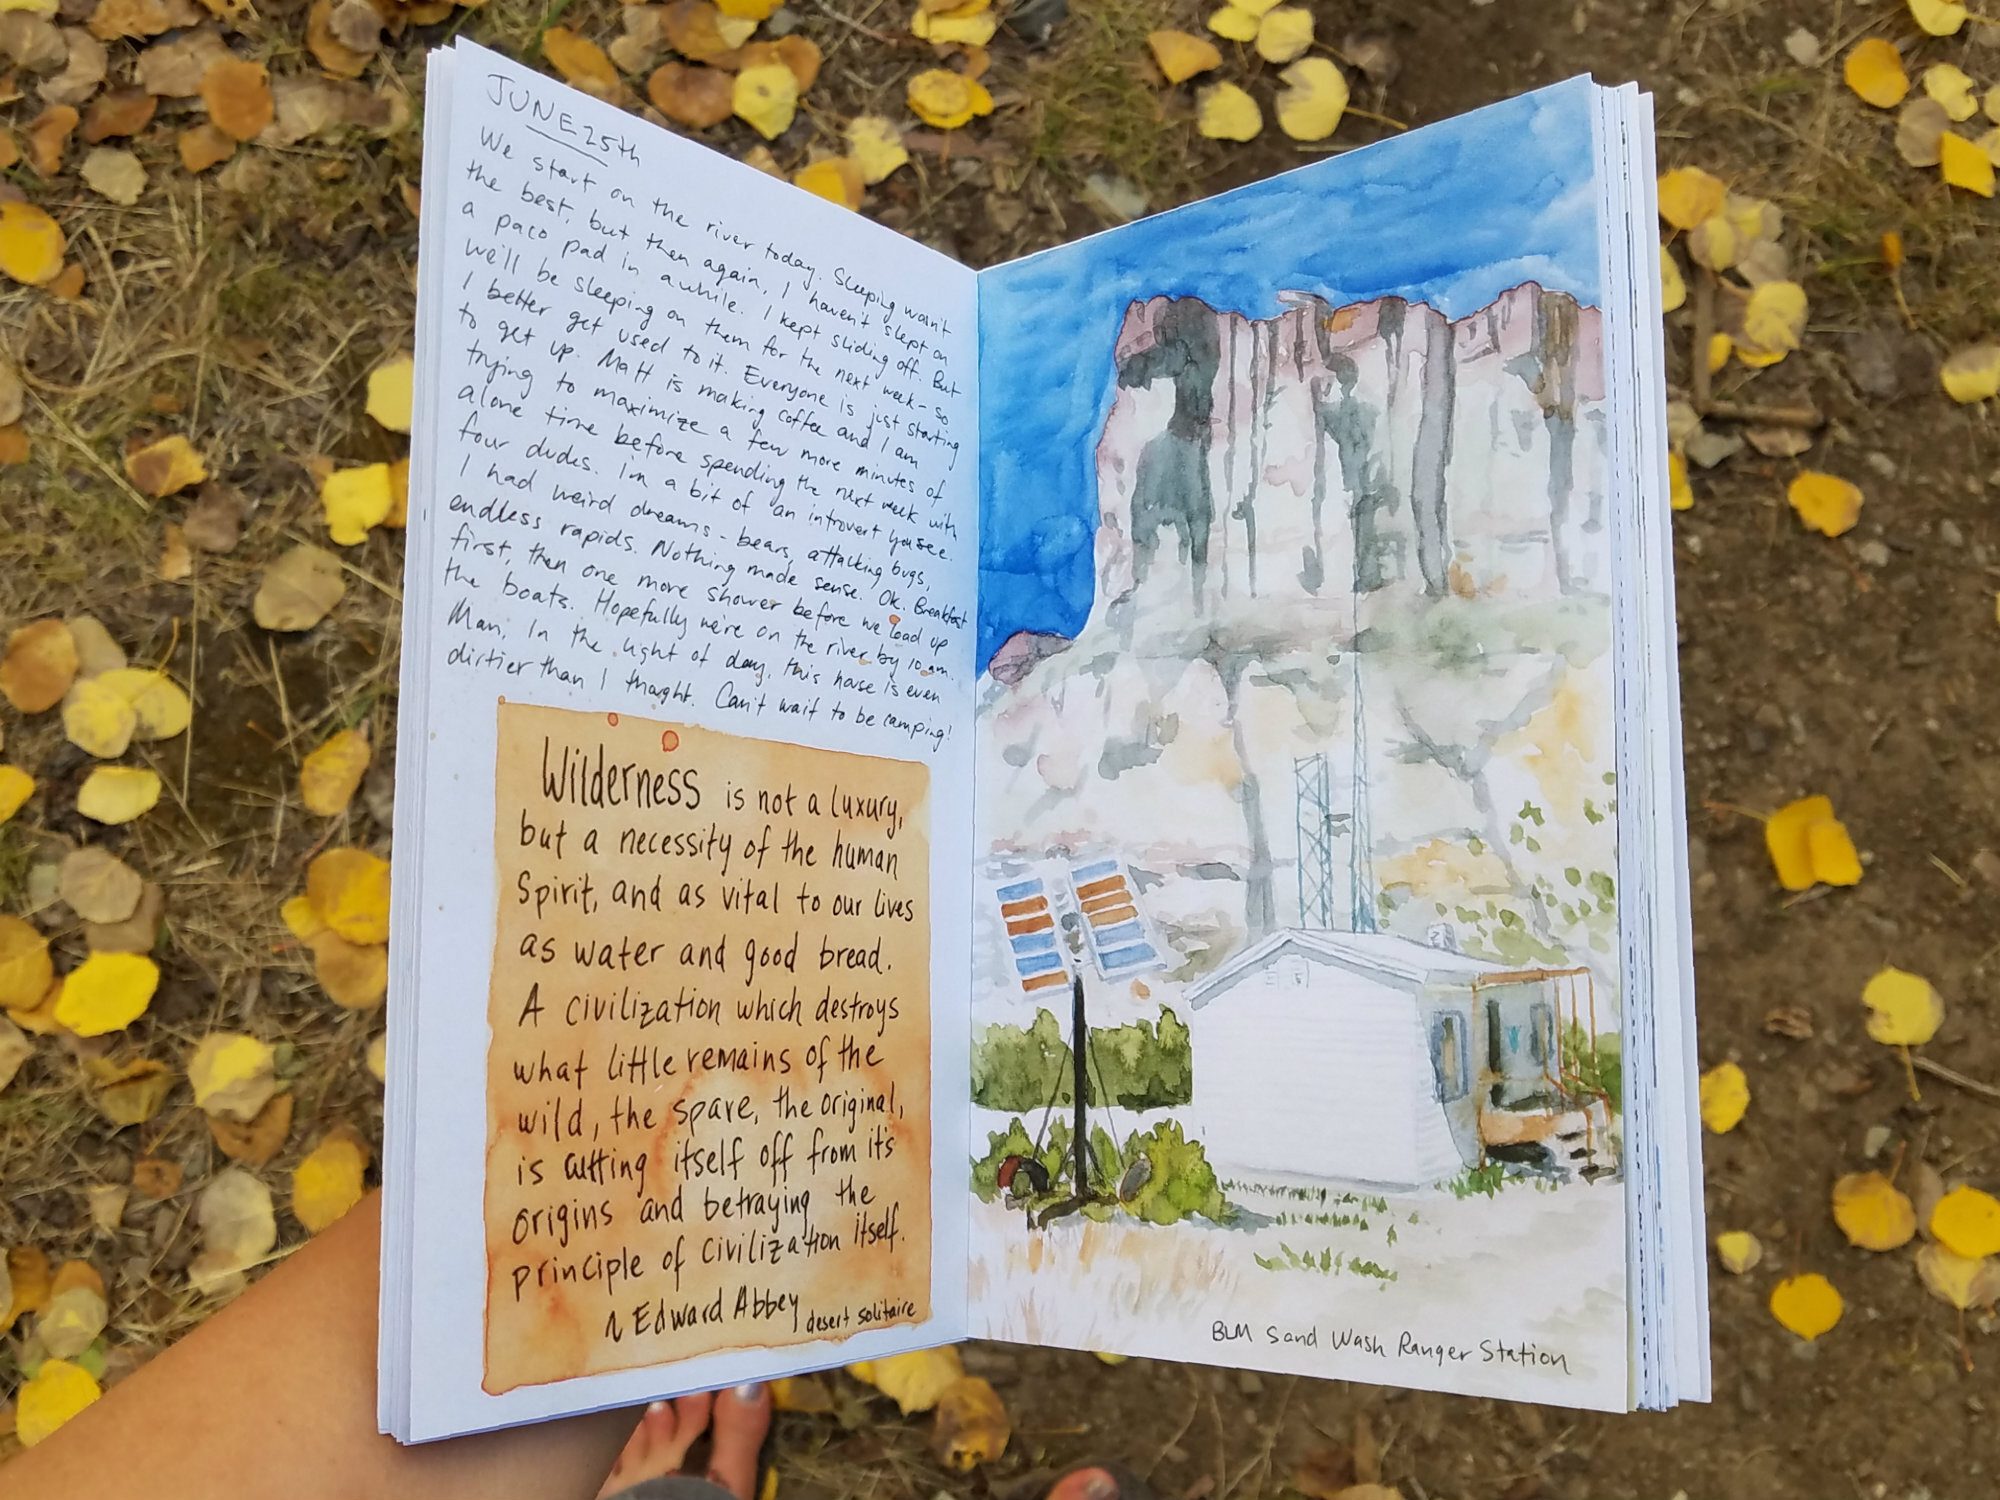 JUNE 25th
We start on the river today. Sleeping wasn't
the best, but then again, I haven't slept on
a paco pad in awhile. I kept sliding off. But
we'll be sleeping on them for the next week - so
I better get used to it. Everyone is just starting
to get up. Matt is making coffee and I am
trying to maximize a few more minutes of
alone time before spending the next week with
four dudes. I'm a bit of an introvert you see.
I had weird dreams - bears, attacking bugs,
endless rapids. Nothing made sense. Ok. Breakfast
first, then one more shower before we load up
the boats. Hopefully we're on the river by 10 am.
Man, In the light of day, this house is even
dirtier than I thought. Can't wait to be camping!
Wilderness is not a luxury,
but a necessity of the human
Spirit, and as vital to our lives
as water and good bread.
A civilization which destroys
what little remains of the
wild, the spare, the original,
is cutting itself off from it's
origins and betraying the
principle of civilization itself.
~ Edward Abbey desert solitaire
BLM Sand Wash Ranger Station